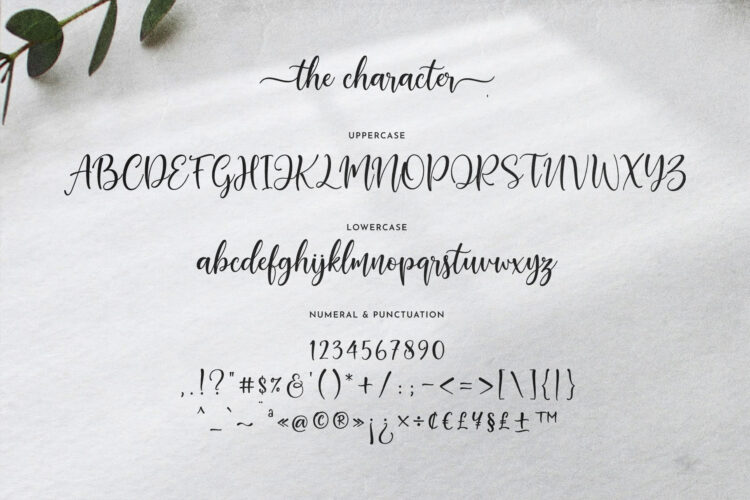 the character
UPPERCASE
ABCDEFGHIJKLMNOPQRSTUVWXYZ
LOWERCASE
abcdefghijklmnopqrstuvwxyz
NUMERAL & PUNCTUATION
1234567890
,.!?"#$%&'()*+/:;-<=>[\]{|}
^_`~¨ª«@©®»¡¿×÷¢€£¥§£±™